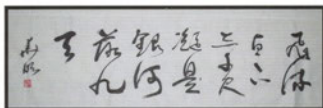 飛流
直下
三千尺
疑是
銀河
落九
天